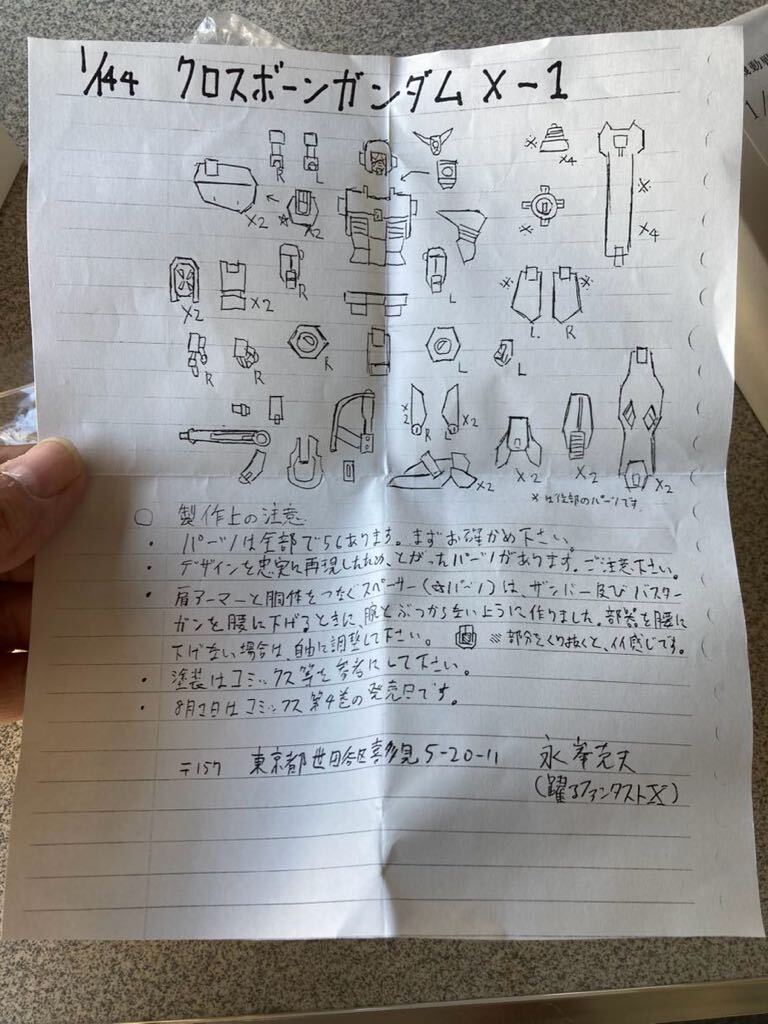 1/144 クロスボーンガンダム X-1
R L
X2
☆ X2
※ X4
※
※ X4
X2
X2
R
L
※ ※
L R
R R R L L
X2 R L X2
X2 X2 X2 X2
※は後部のパーツです。
○ 製作上の注意
・パーツは全部で56あります。まずお確かめ下さい。
・デザインを忠実に再現したため、とがったパーツがあります。ご注意下さい。
・肩アーマーと胴体をつなぐスペーサー(☆パーツ)は、ザンバー及びバスター
ガンを腰に下げるときに、腕とぶつからないように作りました。武器を腰に
下げない場合は、自由に調整して下さい。 ※部分をくり抜くと、イイ感じです。
・塗装はコミックス等を参考にして下さい。
・8月2日はコミックス第4巻の発売日です。
〒157 東京都世田谷区喜多見5-20-11
(躍るファンタストX)
機動戦
1/